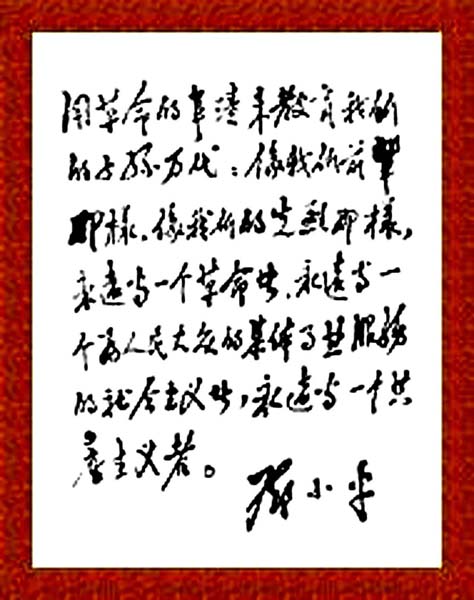 用革命的事蹟来教育我们
的子孫万代：像我们前輩
那樣、像我们的先烈那樣，
永遠当一个革命者、永遠当一
个为人民大众的集体事业服務
的社会主义者，永遠当一个共
產主义者。
邓小平